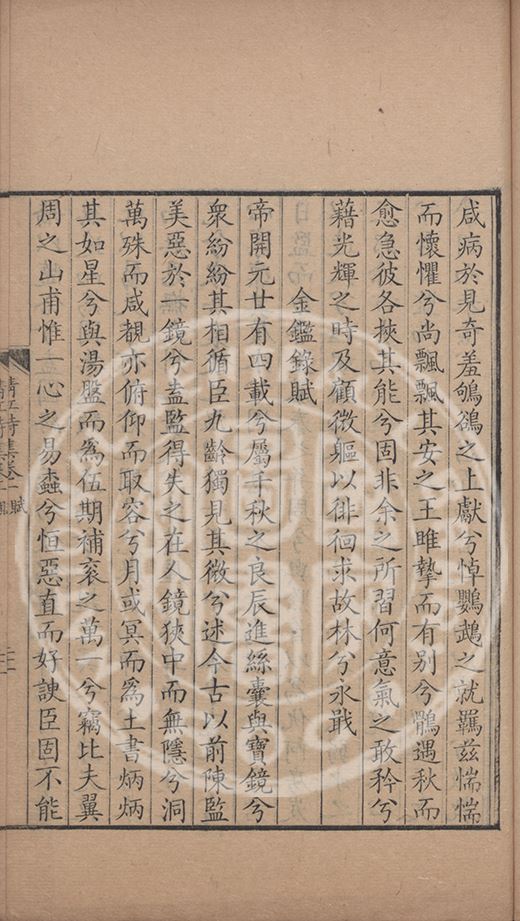 咸病於見奇羞鴝鵒之上獻兮悼鸚鵡之就羈茲惴惴
而懷懼兮尚飄飄其安之王雎摯而有別兮鶻遇秋而
愈急彼各挾其能兮固非余之所習何意氣之敢矜兮
藉光輝之時及顧微軀以徘徊求故林兮永戢
金鑑錄賦
帝開元廿有四載兮屬千秋之良辰進絲囊與寶鏡兮
衆紛紛其相循臣九齡獨見其微兮述今古以前陳監
美惡於一鏡兮盍監得失之在人鏡狹中而無隱兮洞
萬殊而咸覩亦俯仰而取容兮月或冥而為土書炳炳
其如星兮與湯盤而為伍期補衮之萬一兮竊比夫翼
周之山甫惟一心之易蠱兮恒惡直而好諛臣固不能
詩集卷一 賦